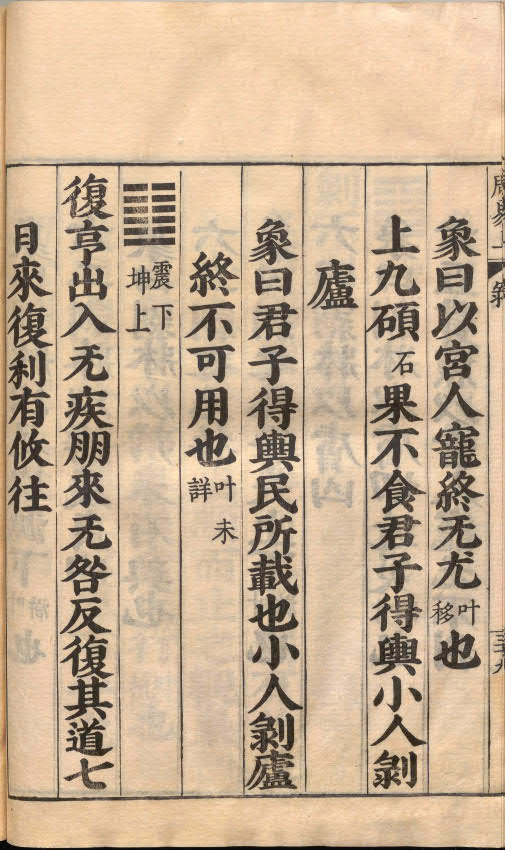 周易上
三十九
象曰以宮人寵終无尤叶移也
上九碩石果不食君子得輿小人剝
廬
象曰君子得輿民所載也小人剝廬
終不可用也叶未詳
䷗震下坤上
復亨出入无疾朋來无咎反復其道七
日來復利有攸往